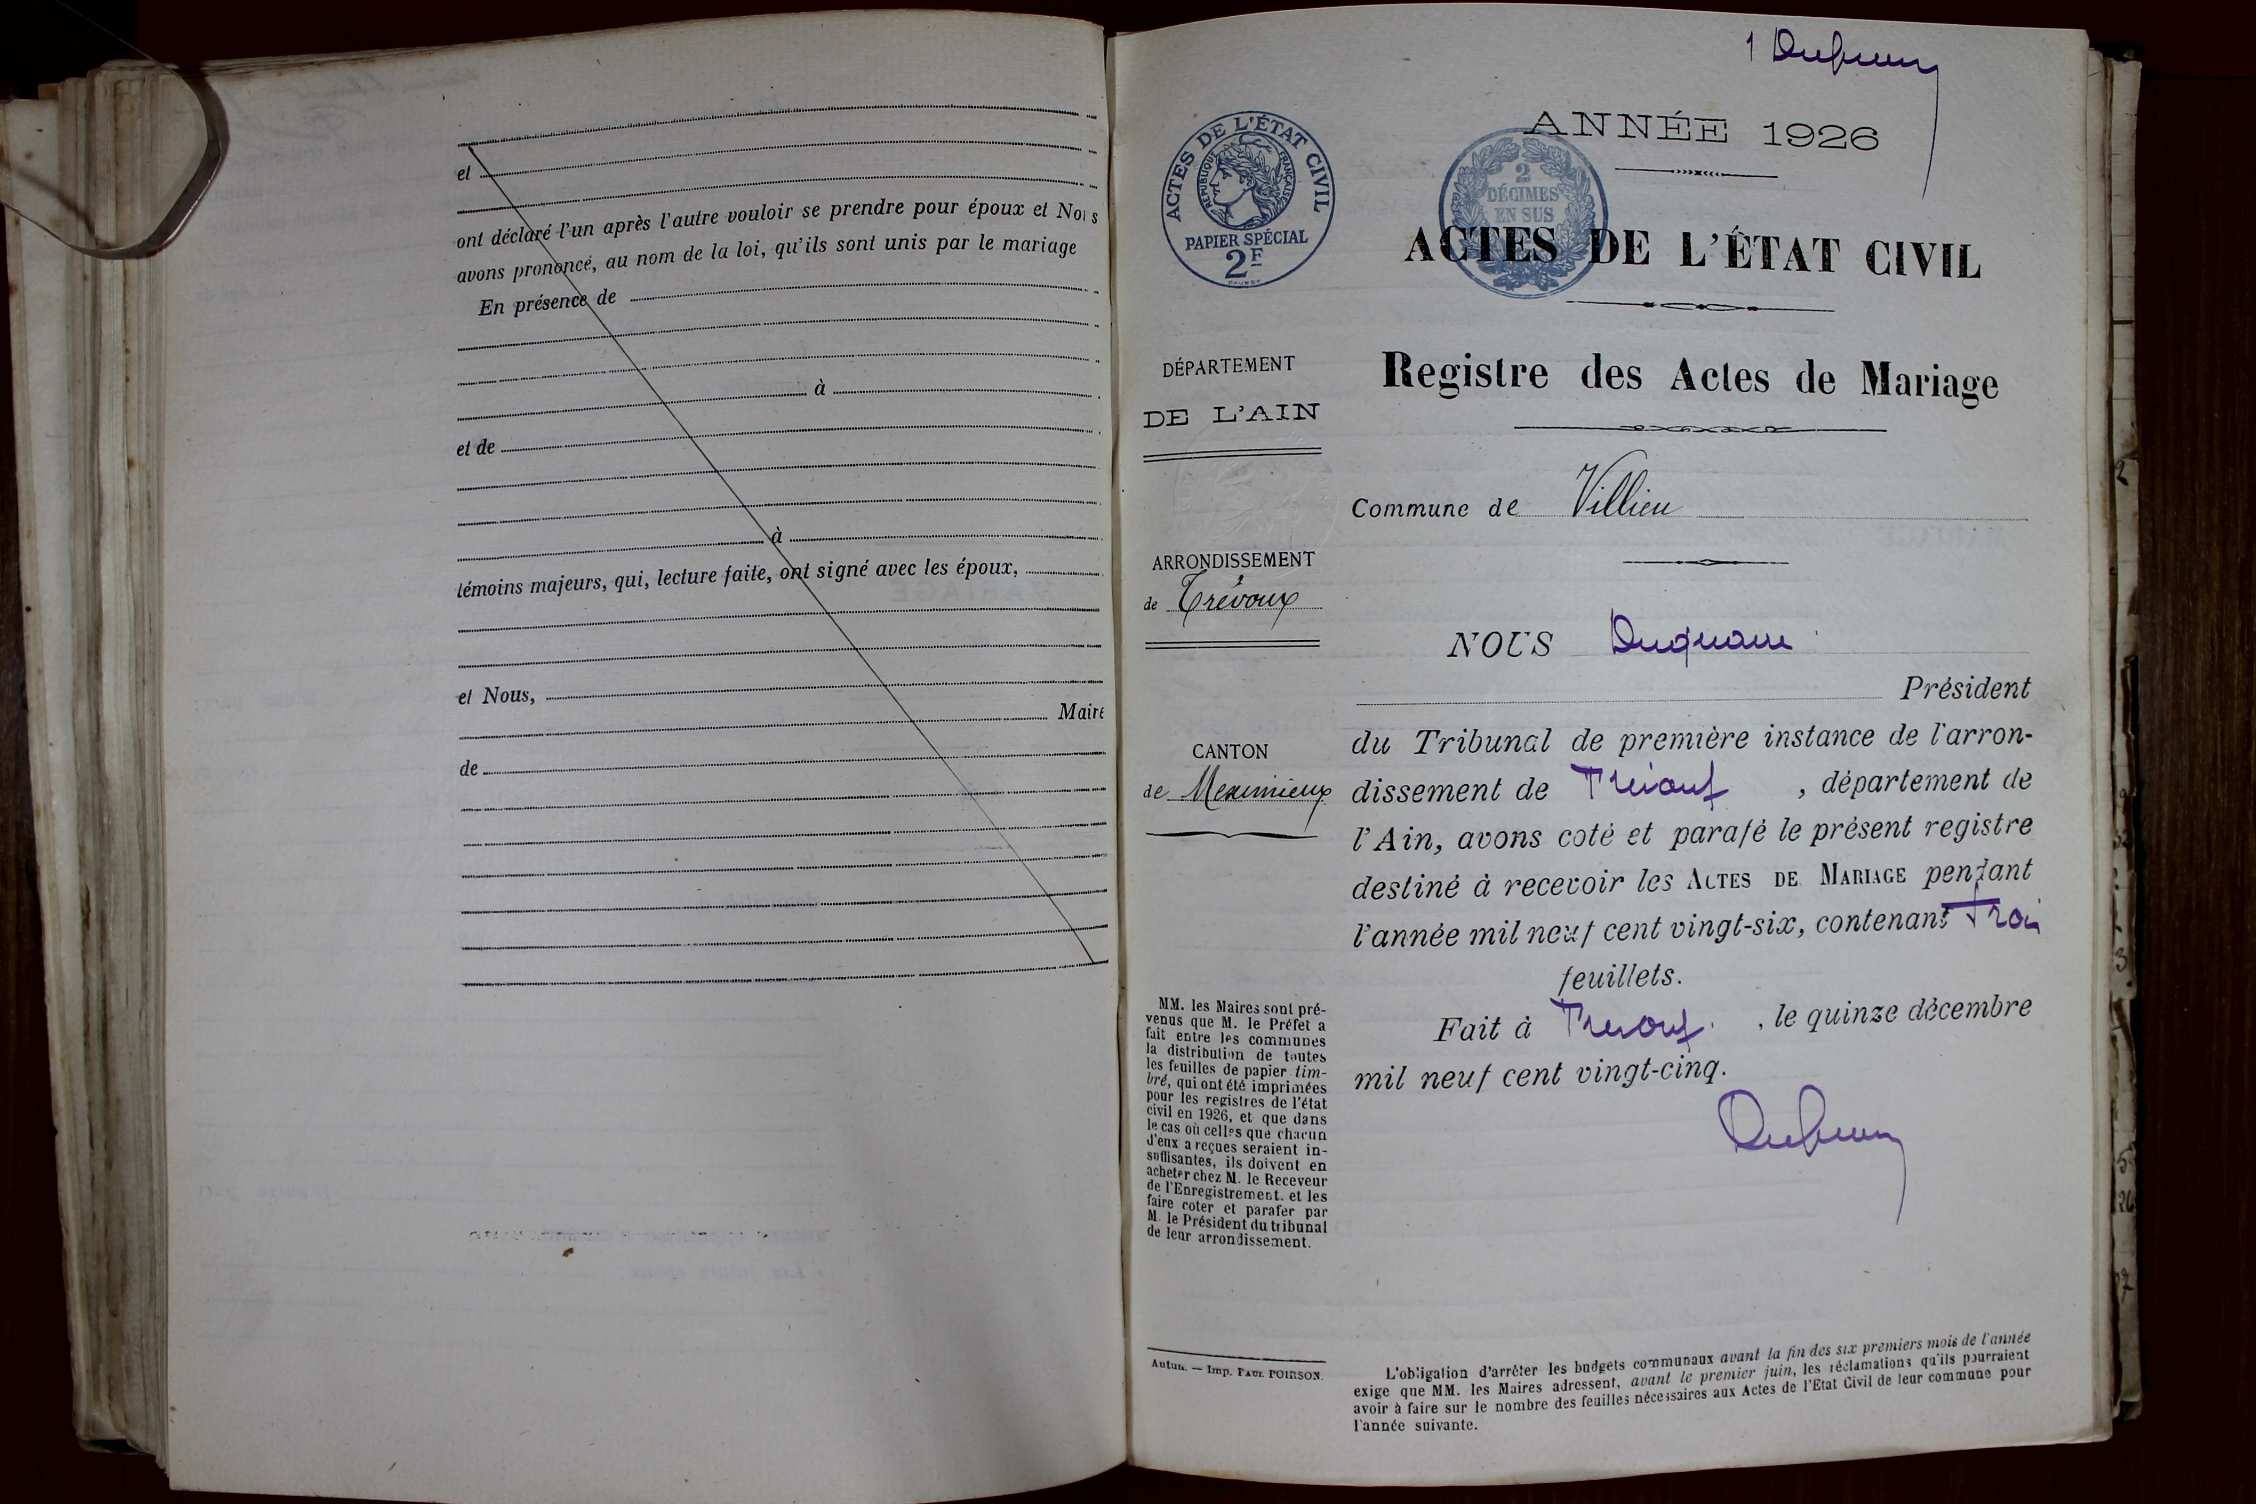 et
ont déclaré l'un après l'autre vouloir se prendre pour époux et Nous
avons prononcé, au nom de la loi, qu'ils sont unis par le mariage
En présence de
à
et de
à
témoins majeurs, qui, lecture faite, ont signé avec les époux,
et Nous,
Maire
de
1
ANNÉE 1926
ACTES DE L'ÉTAT CIVIL
RÉPUBLIQUE FRANÇAISE
PAPIER SPÉCIAL
2F
2
DÉCIMES
EN SUS
ACTES DE L'ÉTAT CIVIL
Registre des Actes de Mariage
DÉPARTEMENT
DE L'AIN
Commune de Villieu
ARRONDISSEMENT
de Trévoux
CANTON
de Meximieux
NOUS
Président
du Tribunal de première instance de l'arron-
dissement de Trévoux, département de
l'Ain, avons coté et parafé le présent registre
destiné à recevoir les ACTES DE MARIAGE pendant
l'année mil neuf cent vingt-six, contenant Trois
feuillets.
Fait à Trévoux, le quinze décembre
mil neuf cent vingt-cinq.
MM. les Maires sont pré-
venus que M. le Préfet a
fait entre les communes
la distribution de toutes
les feuilles de papier tim-
bré, qui ont été imprimées
pour les registres de l'état
civil en 1926, et que dans
le cas où celles que chacun
d'eux a reçues seraient in-
suffisantes, ils doivent en
acheter chez M. le Receveur
de l'Enregistrement. et les
faire coter et parafer par
M. le Président du tribunal
de leur arrondissement.
Autun. — Imp. PAUL POIRSON.
L'obligation d'arrêter les budgets communaux avant la fin des six premiers mois de l'année
exige que MM. les Maires adressent, avant le premier juin, les réclamations qu'ils pourraient
avoir à faire sur le nombre des feuilles nécessaires aux Actes de l'Etat Civil de leur commune pour
l'année suivante.